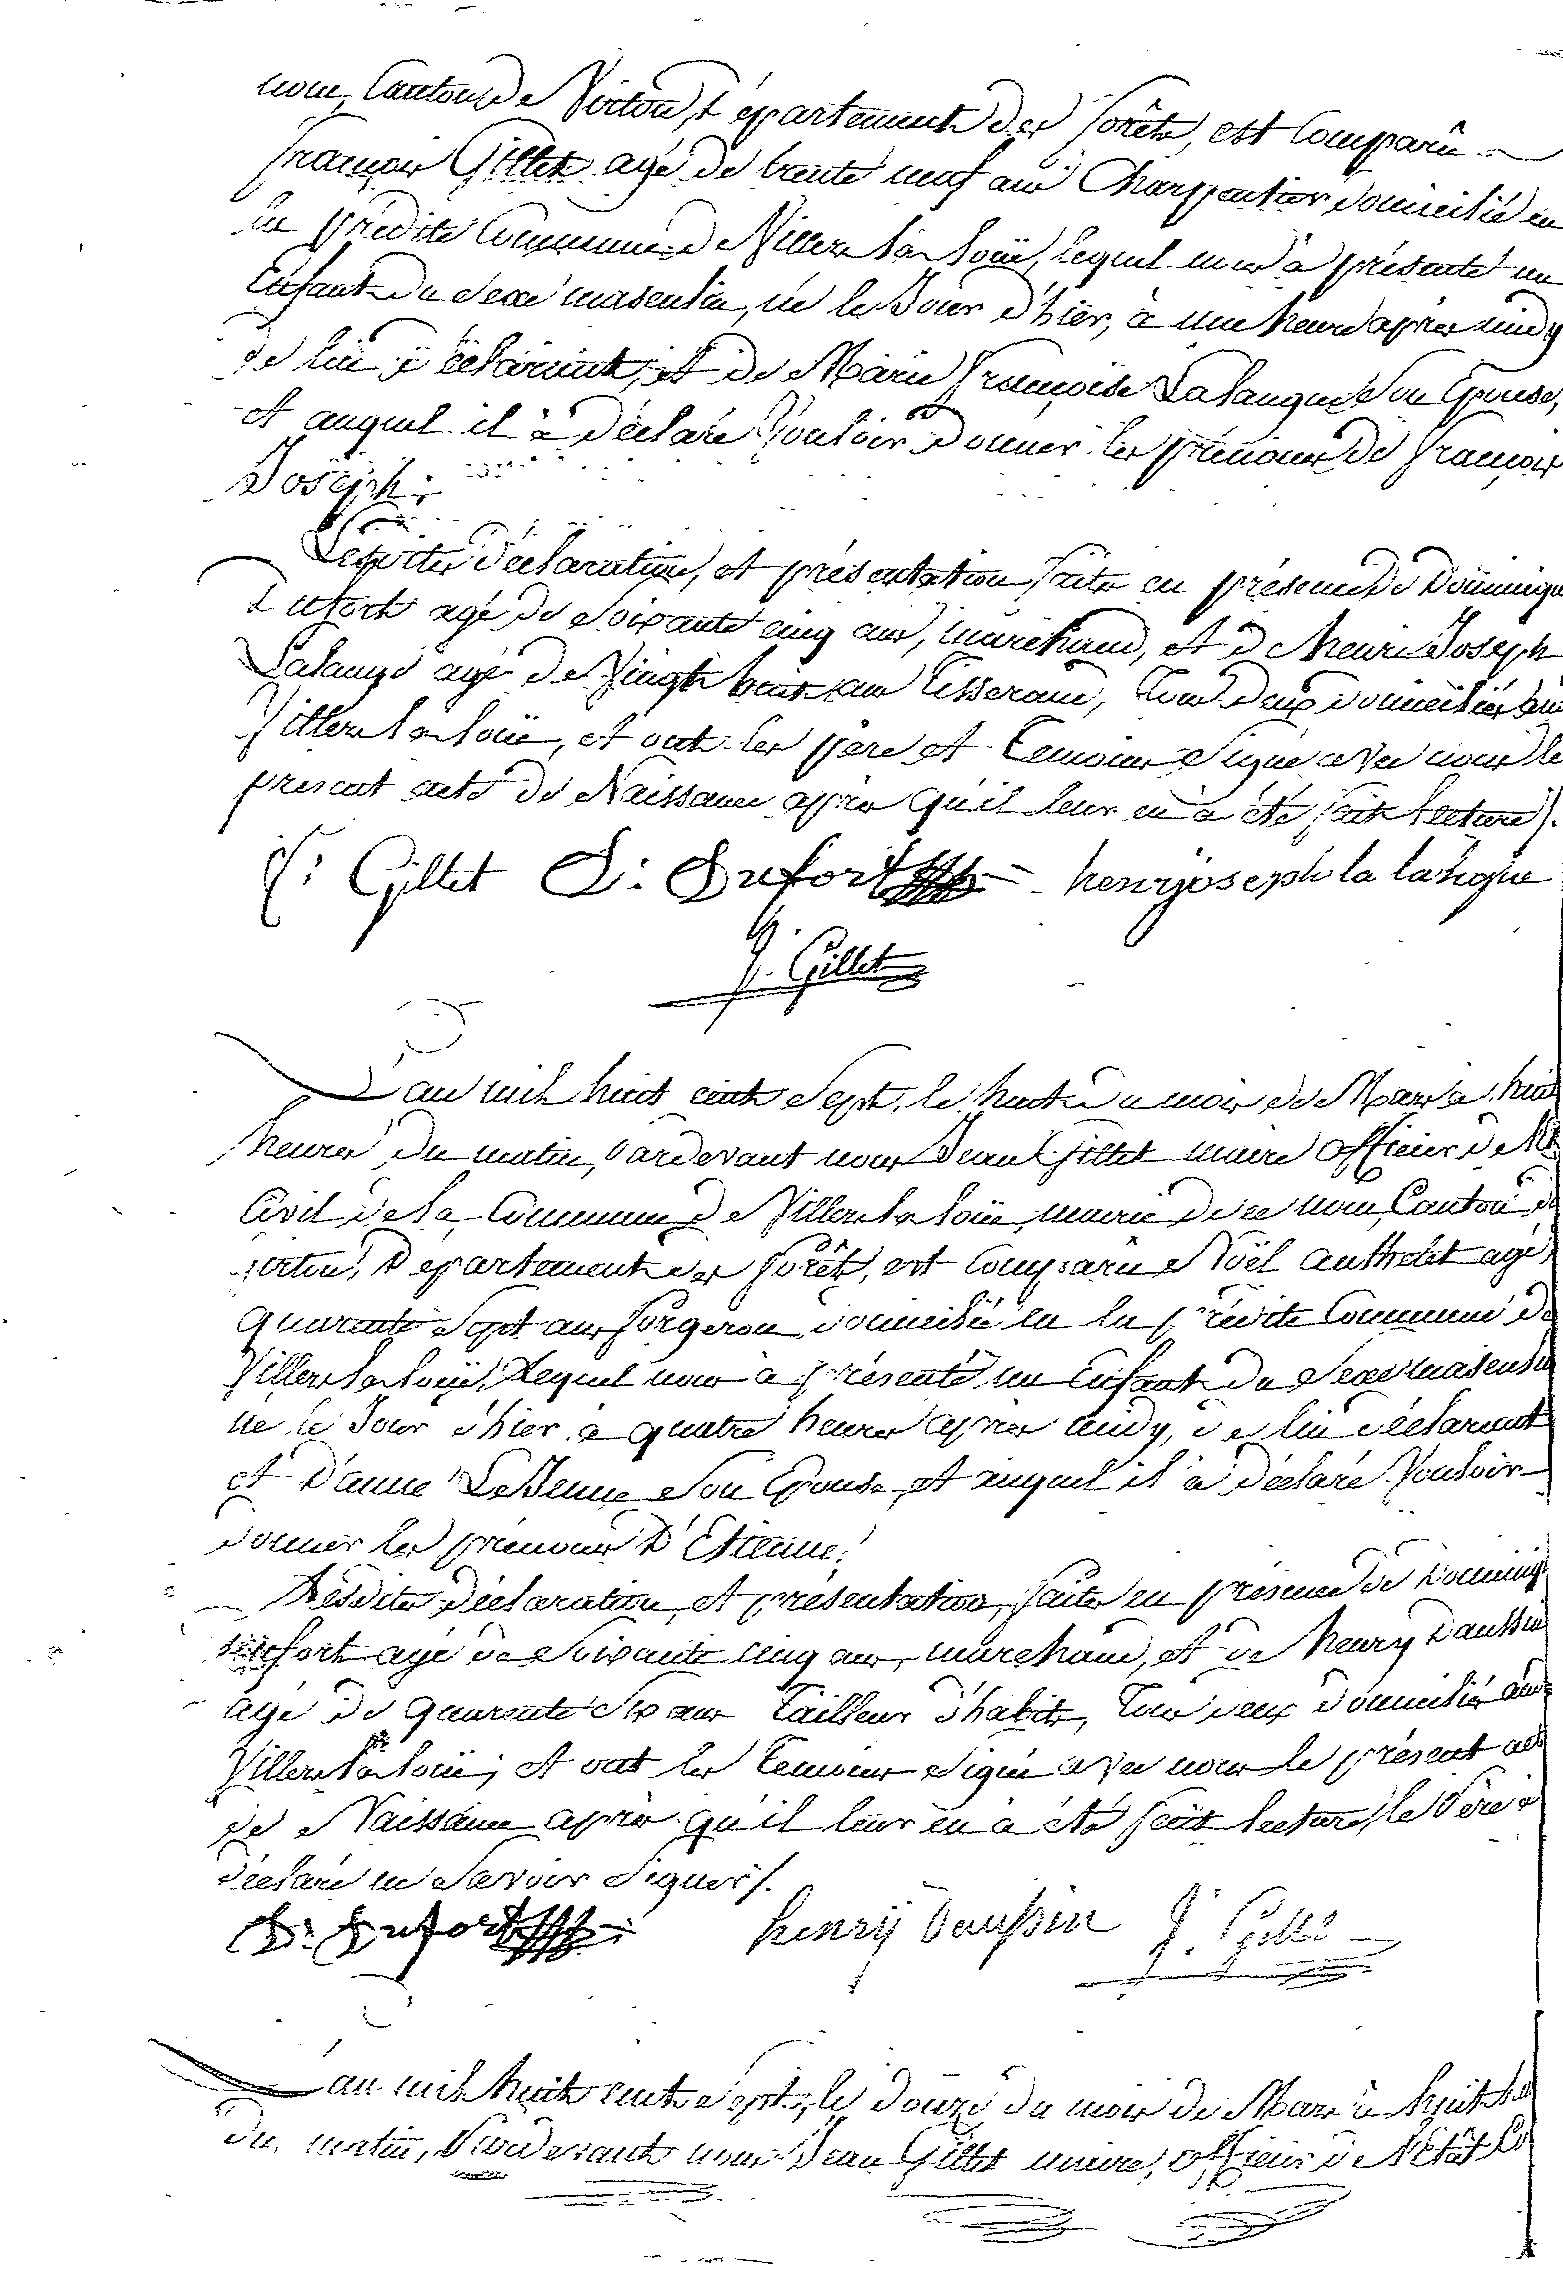 nom, Canton de Virton, Département des forêts, est Comparû
françois Gillet agé de trente neuf ans Charpentier domicilié en
la prédite Commune de Villers la loüe, lequel nous à présenté un
Enfant du Sexe masculin, né le Jour d'hier, à une heure après midy
de lui déclarant, et de Marie françoise Lalangue Son Epouse,
et auquel il à déclaré Vouloir donner les prénoms de françois
Joseph.
Lesdites déclaration, et présentation faite en présence de Dominique
Dufort agé de Soixante cinq ans, marchand, et de henri Joseph
Lalangue agé de Vingt huit ans Tisserand, tous deux domiciliés au
Villers la loüe, et ont les père et Temoins Signé avec nous le
présent acte de Naissance après qu'il leur en à été fait lecture /.
f: Gillet D: Dufort henrijoseph la langue
J. Gillet
L'an mil huit cent Sept, le huit du mois de Mars à huit
heures du matin, Pardevant nous Jean Gillet maire officier de l'Et
Civil de la Commune de Villers la loüe, mairie de ce nom, Canton de
Virton, Département des forêts, est Comparû Noël authelet agé
quarente Sept ans forgeron domicilié en la prédite Commune de
Villers la loüe, Lequel nous à présenté un Enfant du Sexe masculin
né le Jour d'hier à quatre heures après midy, de lui déclarant
et D'anne LeJeune Son Epouse, et auquel il à déclaré Vouloir
donner les prénoms D'Etienne.
Lesdites déclaration, et présentation, faites en présence de Dominiq
Dufort agé de Soixante cinq ans, marchand, et de henry Daussin
agé de quarente Six ans Tailleur d'habits, tous deux domiciliés au
Villers la loüe, et ont les Temoins Signé avec nous le présent acte
de Naissance après qu'il leur en à été fait lecture, le Père à
déclaré ne Savoir Signer /.
D: Dufort henrÿ Daussin J. Gillet
L'an mil huit cent Sept, le douze du mois de Mars à huit he
du matin, Pardevant nous Jean Gillet maire, officier de l'Etât Ci